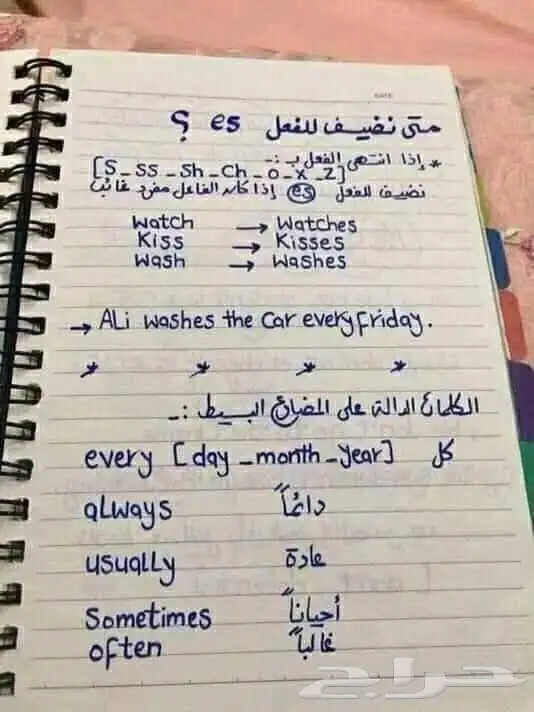 متى نضيف للفعل es ؟
* إذا انتهى الفعل بـ :-
[S - SS - Sh - Ch - O - X - Z]
نضيف للفعل es إذا كان الفاعل مفرد غائب
Watch → Watches
Kiss → Kisses
Wash → Washes
→ ALi washes the car every Friday.
* * * *
الكلمات الدالة على المضارع البسيط :-
every [day - month - year] كل
always دائماً
usually عادة
Sometimes أحياناً
often غالباً
حراج